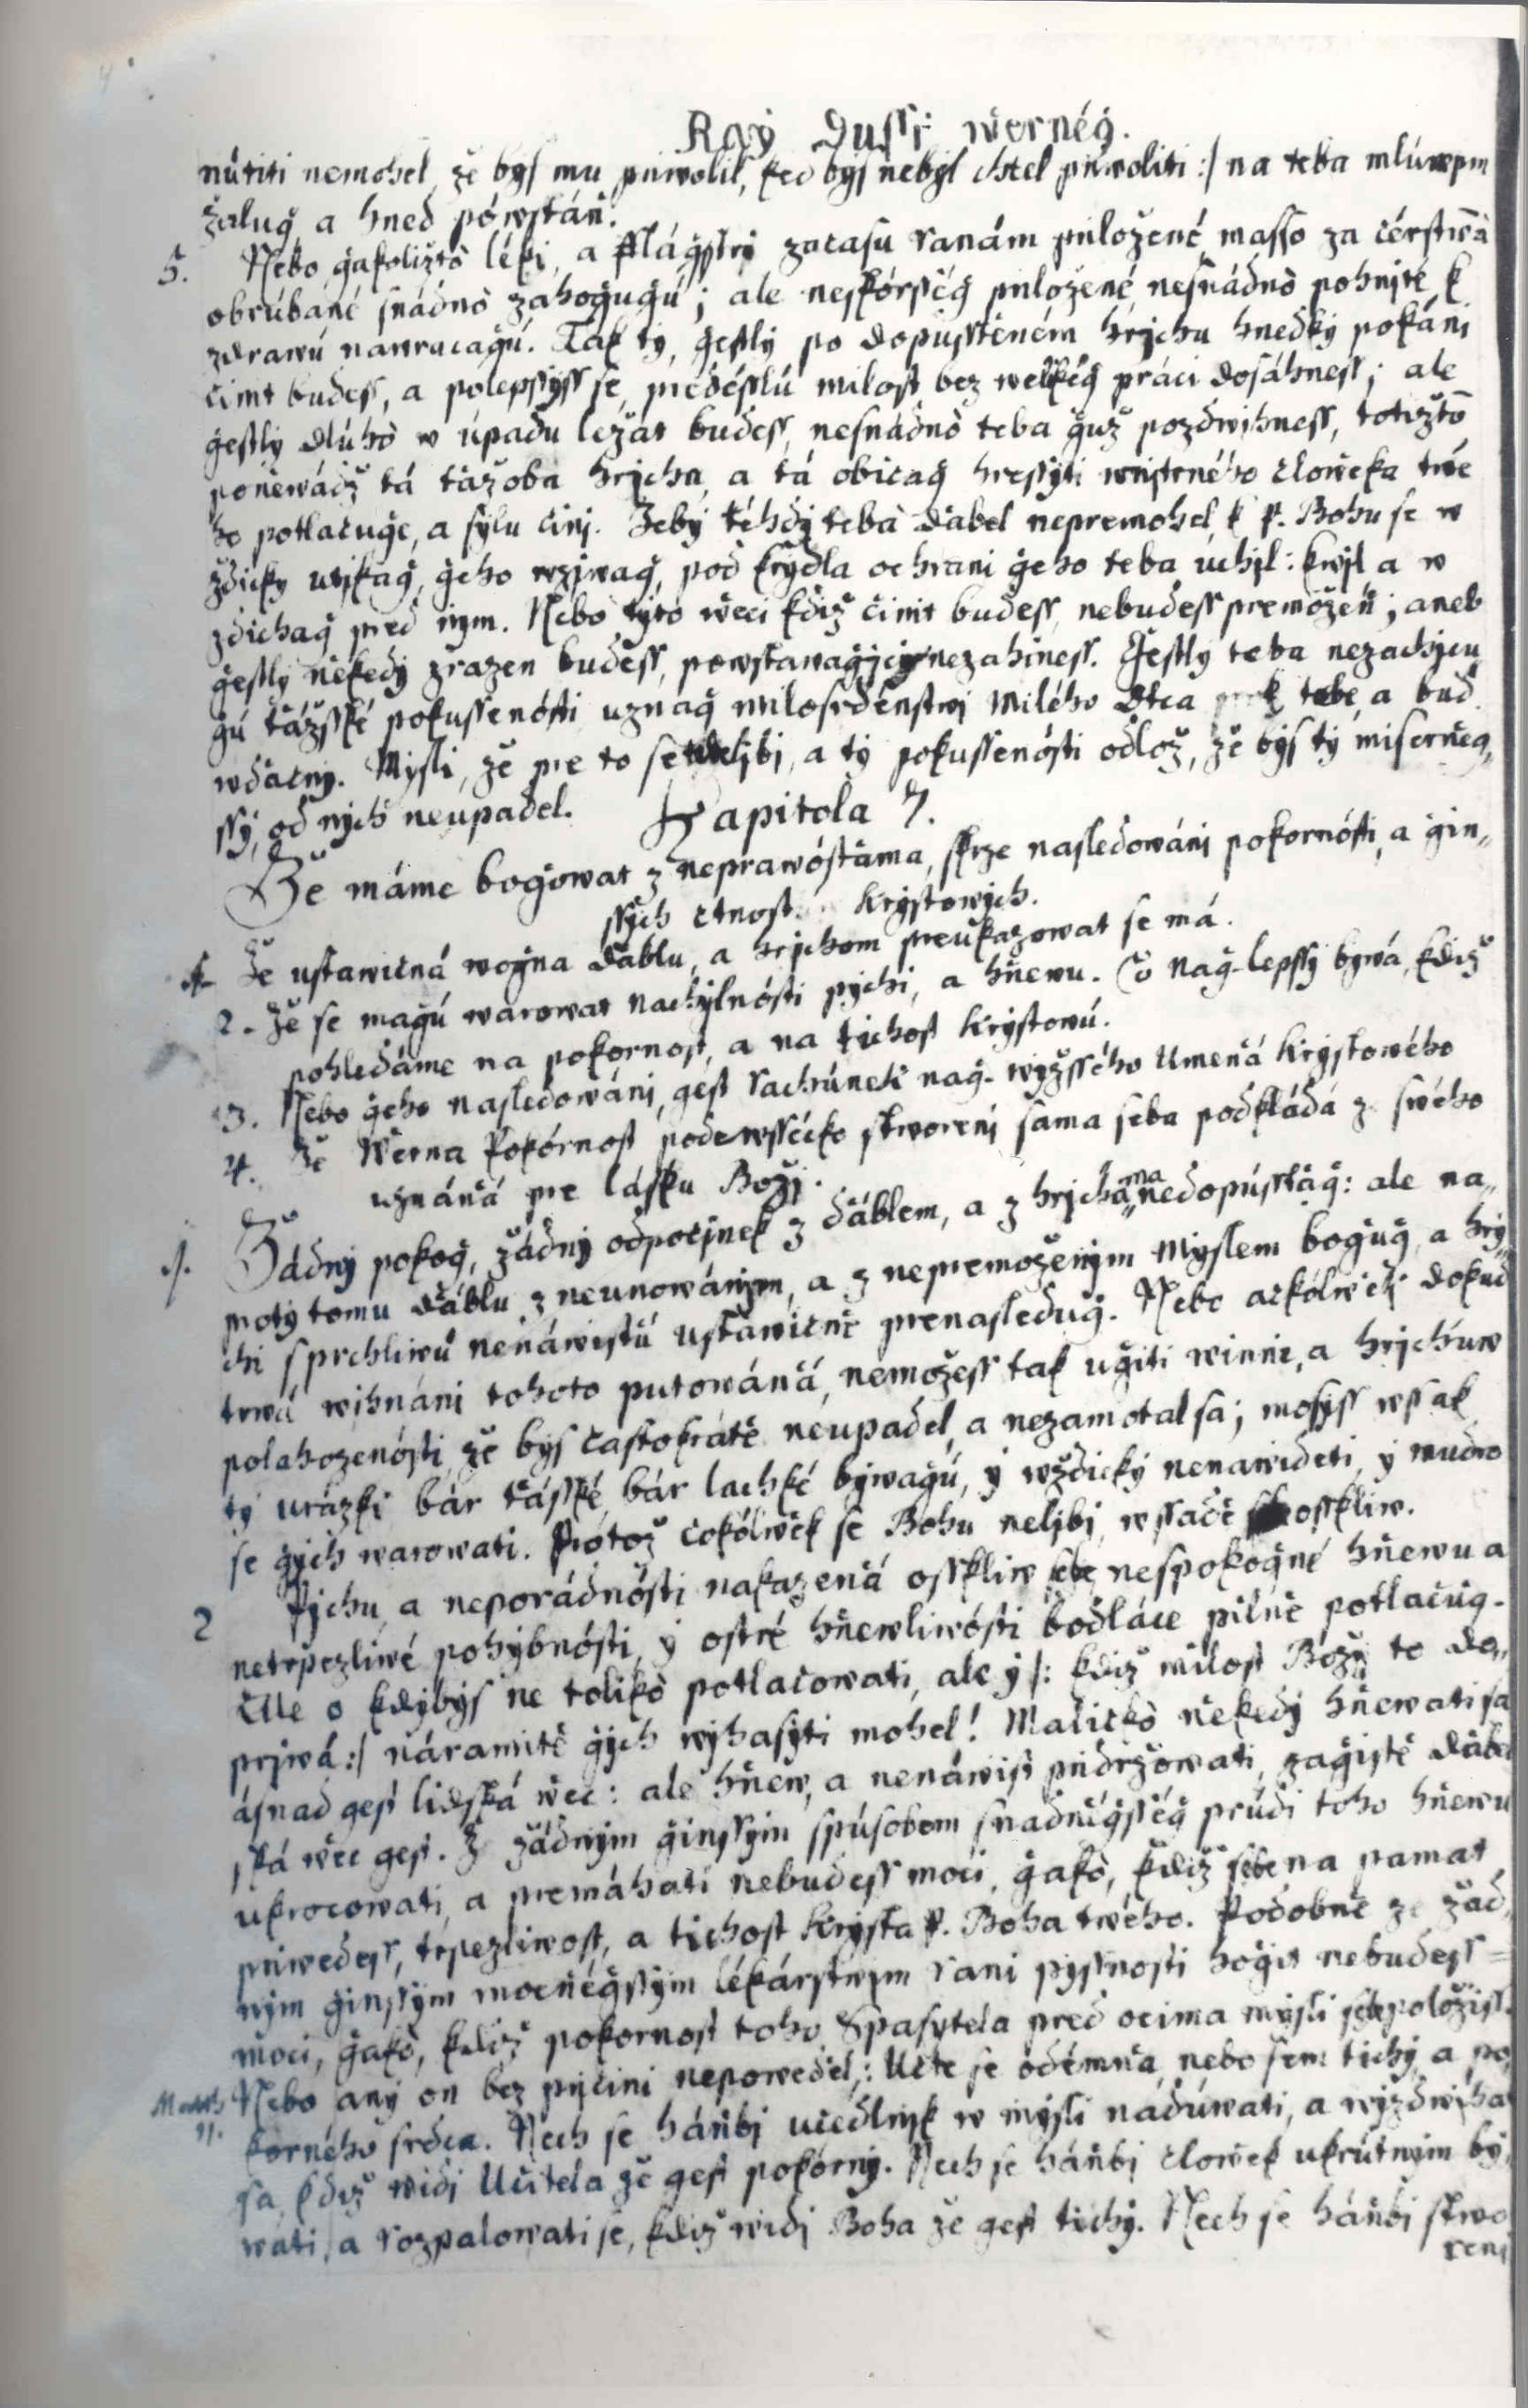 Rag Dussi wernég.
nútiti nemohel, že bys mu priwolil, keď bys nebyl chtel priwoliti :/ na teba mlúwym
žalug a hned pówstáň.
5. Nebo gakoližto léki, a fflágstry zacasu ranám priložené masso za čérstwa
obrúbané snádno zahogugú; ale neskórsség priložené nesnádno pohnité k
zdrawú nawracagú. Tak ty, gestly po dopusstěném hrjchu hnedky pokáni
činit budess, a polepssyss se, predésslú milost bez welkég práci dosáhness; ale
gestly dlúho w úpadu ležat budess, nesnádno teba guž pozdwihness, totižto
poněwádž tá tažoba hrjchu, a tá obicag hressyti wnitrného človeka twé
ho potlačuge, a sylu činj. Žeby téhdy teba ďabel nepremohel k P. Bohu se w
ždicky utjkag, geho wzjwag, pod krydla ochrani geho teba uchjl: kwjl a w
zdichag pred njm. Nebo týto weci kdiž činit budess, nebudess premožen; aneb
gestly někedy zrazen budess, powstawagjcy nezahiness. Gestly teba nezachjcu
gú tážsské pokussenósti uznag milosrdenstwj milého Otca k tebe, a bud
wďačny. Mysli, že pre to se libj, a ty pokussenósti odlož, že bys ty miserněg,,
ssý, od nych neupadel.
Kapitola 7.
Že máme bogowat z neprawóstama, skrze nasledowánj pokornósti, a gin,,
ssych ctnost Krystowych.
1. Že ustawičná wogna ďáblu, a hrjchom preukazowat se má.
2. Že se magú warowat nachylnósti pychi, a hňewu. Čo nag-lepssý bywá, kdiž
pohledáme na pokornost, a na tichost Krystowú.
3. Nebo geho nasledowáni, gest rachúnek nag-wyžssého Umeňá Krystowého
4. Že Werna Pokórnost pode wssécko stworeni sama seba podkládá z swého
uznáňá pre lásku Božj.
1. Žádny pokog, žádny odpočjnek z ďáblem, a z hrjchama nedopússtág: ale na,,
proty tomu ďáblu z neunowánjm, a z nepremoženým Myslem bogug, a hrj,,
chi sprchliwú nenáwistú ustawične prenasledug. Nebo ačkólwék dokud
trwá wihnáni tohoto putowáňá, nemožess tak ugiti winni, a hrjchúw
polahozenósti, že bys častokráte neupadel, a nezamotal sa; mosyss wssak
ty urázki bár tásské bár lachké bywagú, y wždicky nenawideti, y mudro
se gych warowati. Prótož čokólwék se Bohu neljbi, wssače osskliw.
2 Pychu, a neporádnósti nakazená ossklíw sebe nespokogné hňewu a
netrpezliwé pohybnósti, y ostré hňewliwósti bodláce pilně potlačúg.
Ale o kdybys ne toliko potlačowati, ale y /: kdiž milost Božj to do,,
prjwá :/ náramitě gych wyhasyti mohel! Maličko někedy hňewati sa
ásnad gest lidská wec: ale hňew, a nenáwist pridržowati, zagistě ďábel
ská wec gest. Z žádnym ginssym spúsobem snadnégsség prúdi toho hňewu
ukrocowati, a premáhati nebudess moci, gako, kdiž sebe na pamat
priwedess, trpezliwost, a tichost Krysta P. Boha twého. Podobně ze žád,,
nym ginssym mocnégssým lékárstwjm rani pyssnosti hogit nebudess
moci, gako, kdiž pokornost toho Spasytela pred ocima mysli sebe položiss.
Matth 11. Nebo any on bez pričini nepowedel: Učte se odémňa, nebo sem tichy, a po
korného srdca. Nech se háňbj učedlnjk w mysli nadúwati, a wyzdwihat
sa, kdiž widj Učitela že gest pokórny. Nech se háňbj človek ukrutnym by,,
wati, a rozpalowati se, kdiž widj Boha že gest tichy. Nech se háňbj stwo
reni